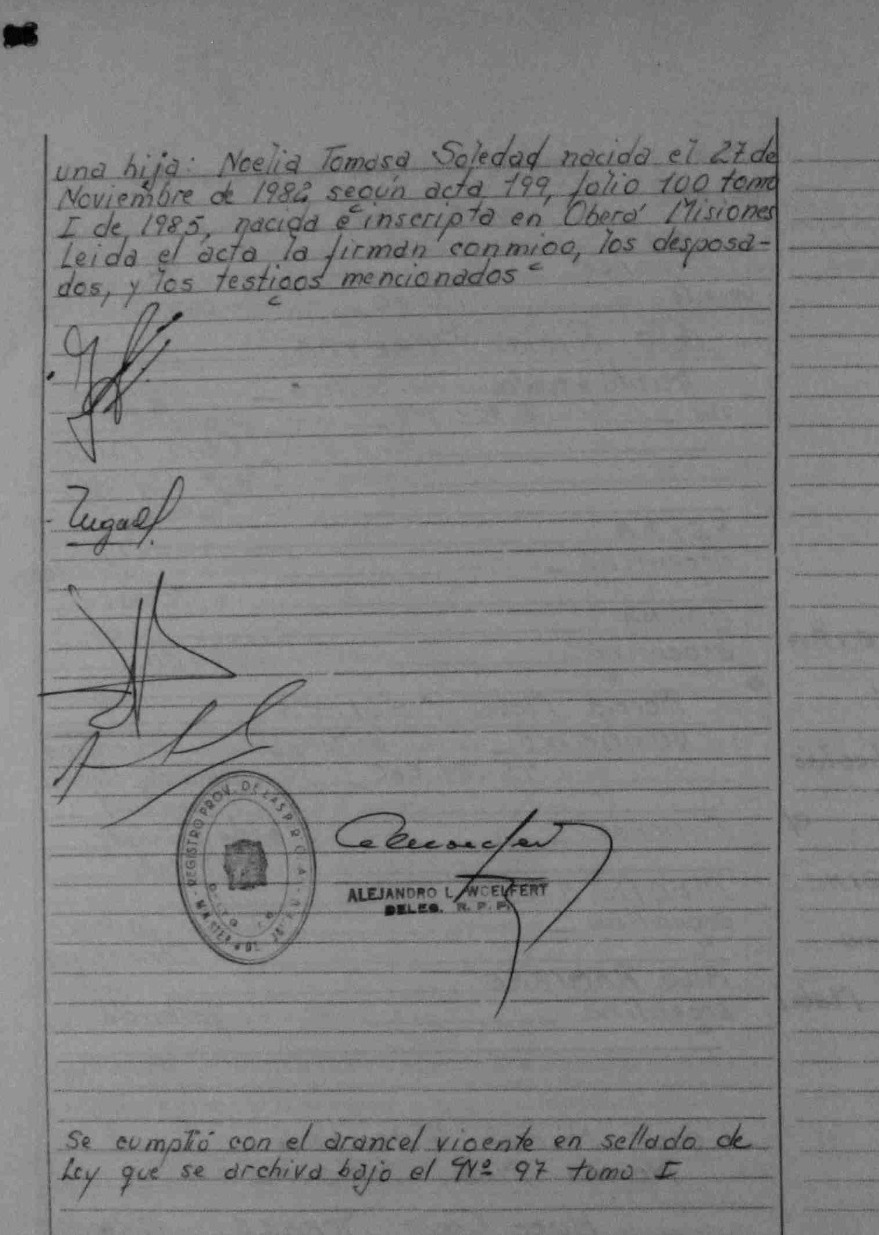 una hija: Noelia Tomasa Soledad nacida el 27 de
Noviembre de 1982 según acta 199, folio 100 tomo
I de 1985, nacida e inscripta en Oberá Misiones
Leida el acta la firman conmigo, los desposa-
dos, y los testigos mencionados
REGISTRO PROV. DE LAS P.
ALEJANDRO L. WOELFERT
DELEG. R. P. P.
Se cumplió con el arancel vigente en sellado de
Ley que se archiva bajo el Nº 97 tomo I